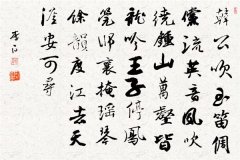 韓公吹玉笛倜
儻流英音風吹
繞鍾山萬壑皆
龍吟王子停鳳
筦師襄掩瑶琴
餘韻度江去天
涯安可尋